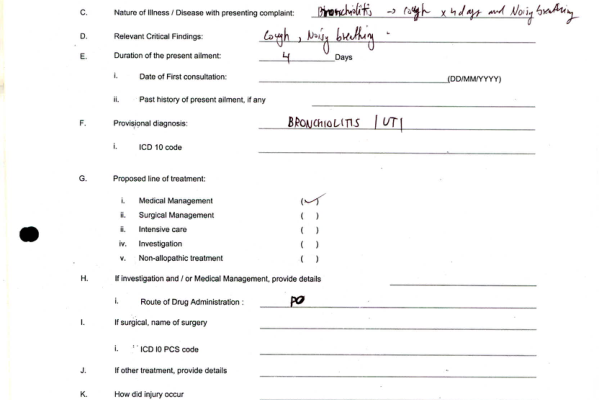 C. Nature of Illness / Disease with presenting complaint: Bronchiolitis → cough x 4 days and Noisy breathing
D. Relevant Critical Findings: Cough, Noisy breathing.
E. Duration of the present ailment: 4 Days
i. Date of First consultation: (DD/MM/YYYY)
ii. Past history of present ailment, if any
F. Provisional diagnosis: BRONCHIOLITIS | UTI
i. ICD 10 code
G. Proposed line of treatment:
i. Medical Management (✓)
ii. Surgical Management ( )
ii. Intensive care ( )
iv. Investigation ( )
v. Non-allopathic treatment ( )
H. If investigation and / or Medical Management, provide details
i. Route of Drug Administration : PO
I. If surgical, name of surgery
i. ICD I0 PCS code
J. If other treatment, provide details
K. How did injury occur